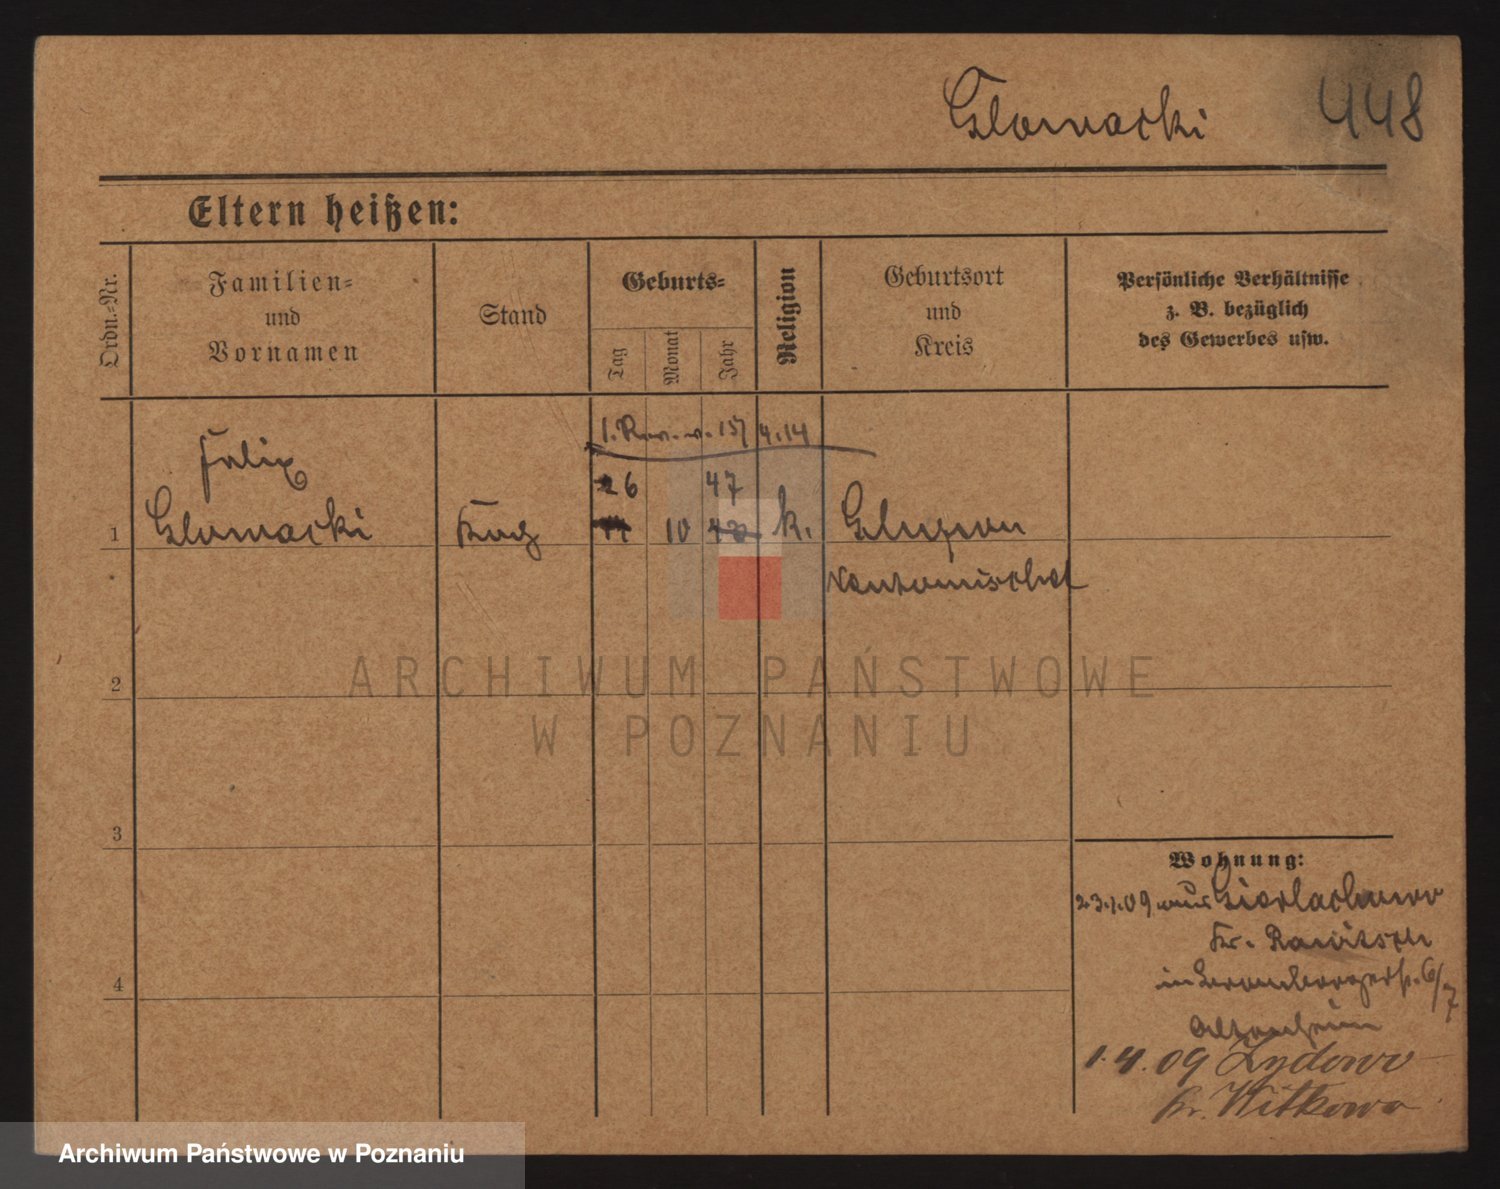 Glowacki 448
Eltern heißen:
Ordn.-Nr.
Familien=
und
Vornamen
Stand
Geburts=
Tag
Monat
Jahr
Religion
Geburtsort
und
Kreis
Persönliche Verhältnisse
z. B. bezüglich
des Gewerbes usw.
1. Rev. v. 15/4.14
Felix
26 47
1 Glowacki Koch 10 k.
Neutomischel
2
ARCHIWUM PAŃSTWOWE
W POZNANIU
3
Wohnung:
23.1.09 aus
Kr. Rawitsch
in 6/7
Altenheim
4
1.4.09 Zydowo
Kr. Witkowo
Archiwum Państwowe w Poznaniu